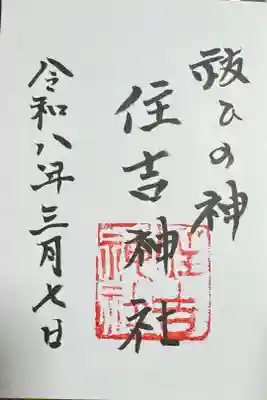 祓ひの神
住吉神社
住吉
神社
令和八年三月七日